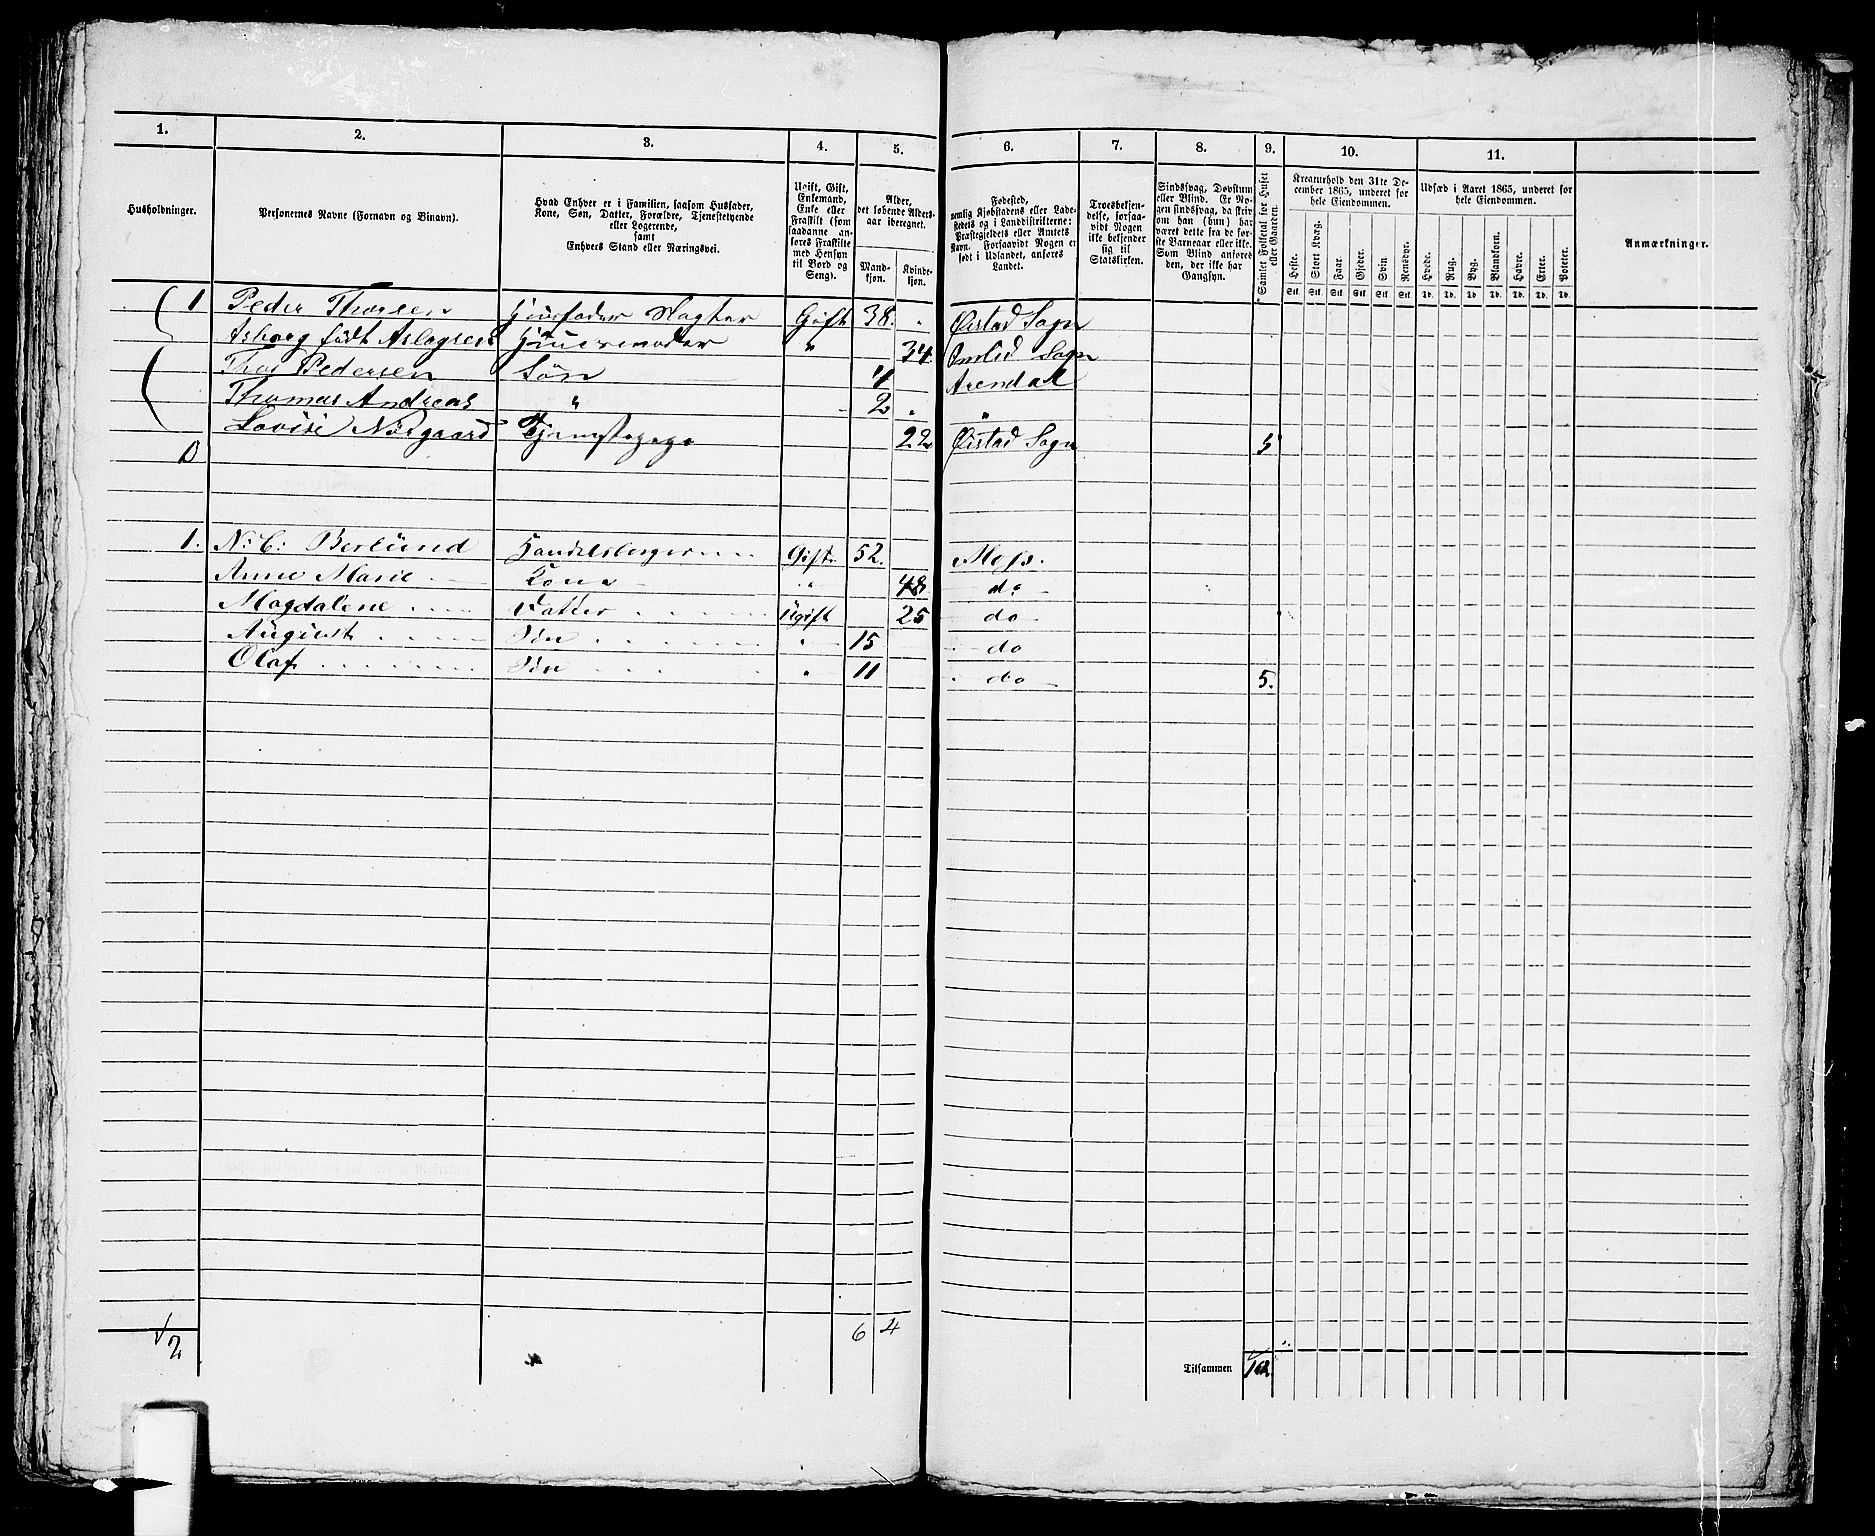 1. 2. 3. 4. 5. 6. 7. 8. 9. 10. 11.
Husholdninger.
Personernes Navne (Fornavn og Binavn).
Hvad Enhver er i Familien, saasom Husfader,
Kone, Søn, Datter, Forældre, Tjenestetyende
eller Logerende,
samt
Enhvers Stand eller Næringsvei.
Ugift, Gift,
Enkemand,
Enke eller
Fraskilt (som
saadanne an-
føres Fraskilte
med Hensyn
til Bord og
Seng).
Alder,
det løbende Alders-
aar iberegnet.
Mand-
kjøn.
Kvinde-
kjøn.
Fødested,
nemlig Kjøbstadens eller Lade-
stedets og i Landdistrikterne:
Præstegjeldets eller Amtets
Navn. Forsaavidt Nogen er
født i Udlandet, anføres
Landet.
Troesbekjen-
delse, forsaa-
vidt Nogen
ikke bekjender
sig til
Statskirken.
Sindssvag, Døvstum
eller Blind. Er No-
gen sindssvag, da skriv
om han (hun) har
været dette fra de før-
ste Barneaar eller ikke.
Som Blind anføres
den, der ikke har
Gangsyn.
Samlet Folketal for Huset
eller Gaarden.
Kreaturhold den 31te De-
cember 1865, underet for
hele Eiendommen.
Heste. Stort Kvæg. Faar. Gjeder. Svin. Rensdyr.
Stk. Stk. Stk. Stk. Stk. Stk.
Udsæd i Aaret 1865, underet for
hele Eiendommen.
Hvede. Rug. Byg. Blandkorn. Havre. Erter. Poteter.
Td. Td. Td. Td. Td. Td. Td.
Anmærkninger.
1 Peder Thorsen Huusfader Slagter Gift 38. Øistad Sogn
Asborg født Aslagsen Huusmoder " 34 Omlid Sogn
Thor Pedersen Søn 4 Arendal
Thomas Andreas " 2 "
Lovise Nørgaard Tjenstepige 22 Øistad Sogn 5
1. N: C: Berlund Handelsborger Gift 52. Moss.
Anne Marie Kone " 48 do
Magdalene Datter Ugift 25 do
August Søn " 15 do
Olaf Søn " 11 do 5.
√2 6 4
Tilsammen 10